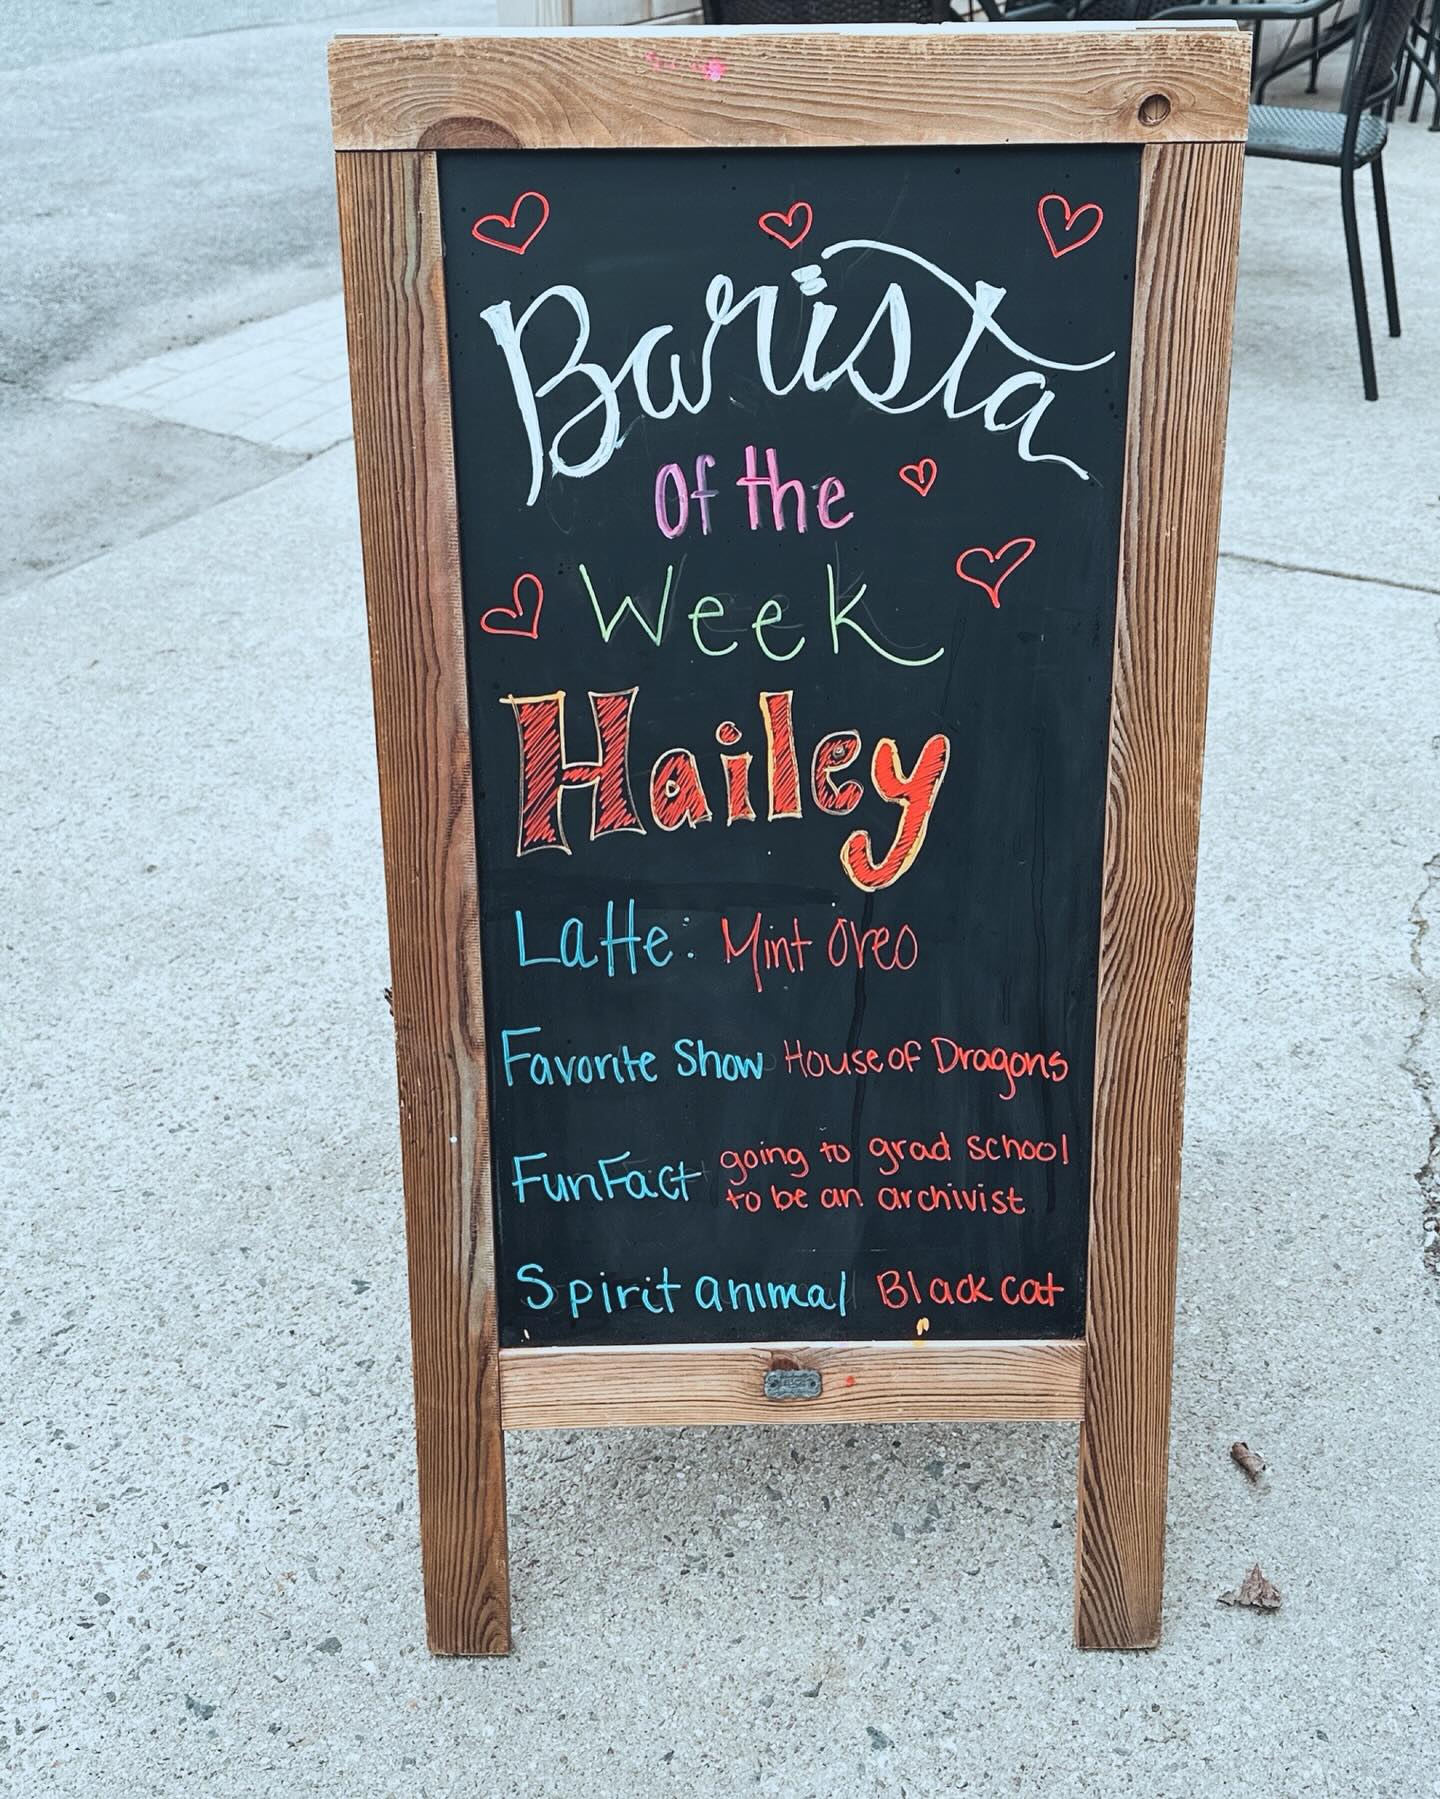 Barista
Of the
Week
Hailey
Latte: Mint Oreo
Favorite Show House of Dragons
Fun Fact going to grad school
to be an archivist
Spirit animal Black cat